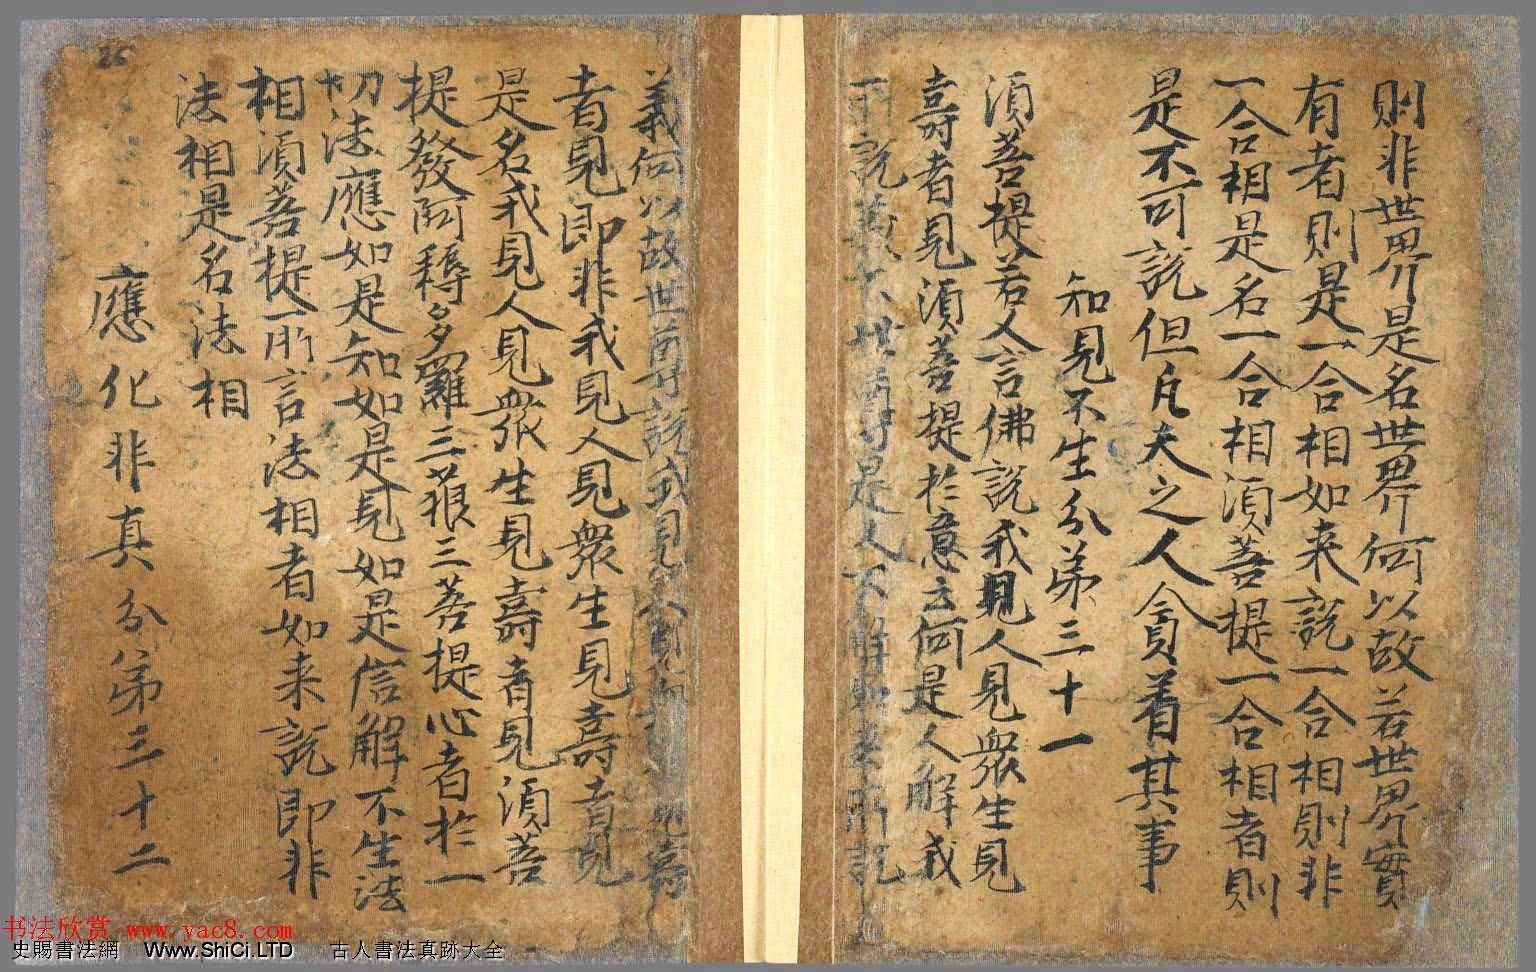 則非世界是名世界何以故若世界實
有者則是一合相如来說一合相則非
一合相是名一合相須菩提一合相者則
是不可說但凡夫之人貪著其事
知見不生分弟三十一
須菩提若人言佛說我見人見眾生見
壽者見須菩提於意云何是人解我
所說義不世尊是人不解如来所說
義何以故世尊說我見人見眾生見壽
者見即非我見人見眾生見壽者見
是名我見人見眾生見壽者見須菩
提發阿耨多羅三藐三菩提心者於一
切法應如是知如是見如是信解不生法
相須菩提所言法相者如来說即非
法相是名法相
應化非真分弟三十二
26
书法欣赏 www.yac8.com
史賜書法網 Www.ShiCi.LTD 古人書法真跡大全